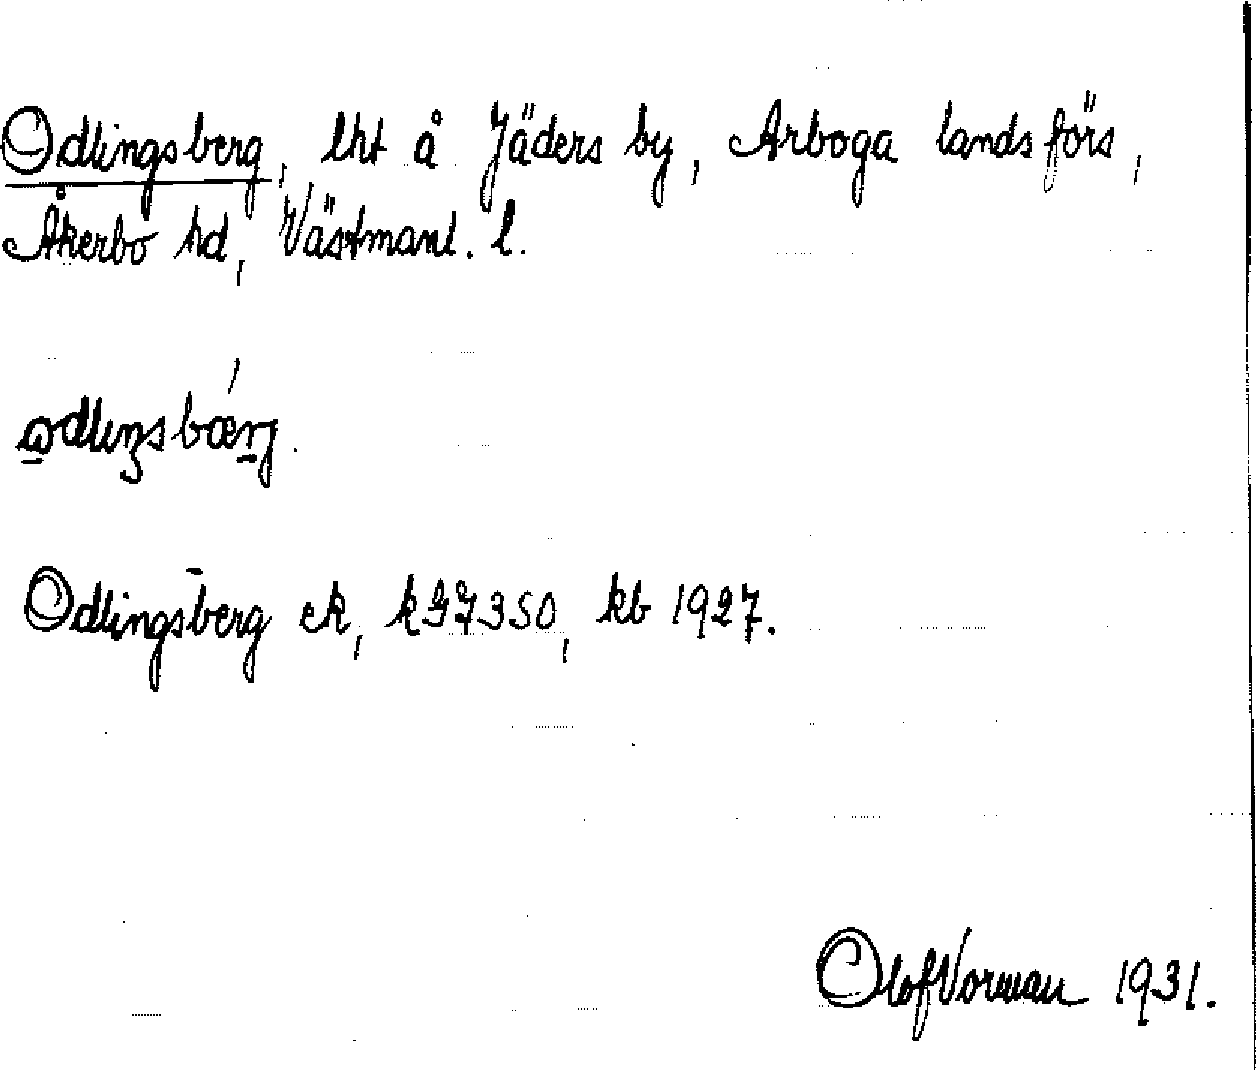 Odlingsberg, lht å Jäders by, Arboga landsförs,
Åkerbo hd, Västmanl. l.
Odlingsberg ek, kb 1927.
Olof Vorman 1931.